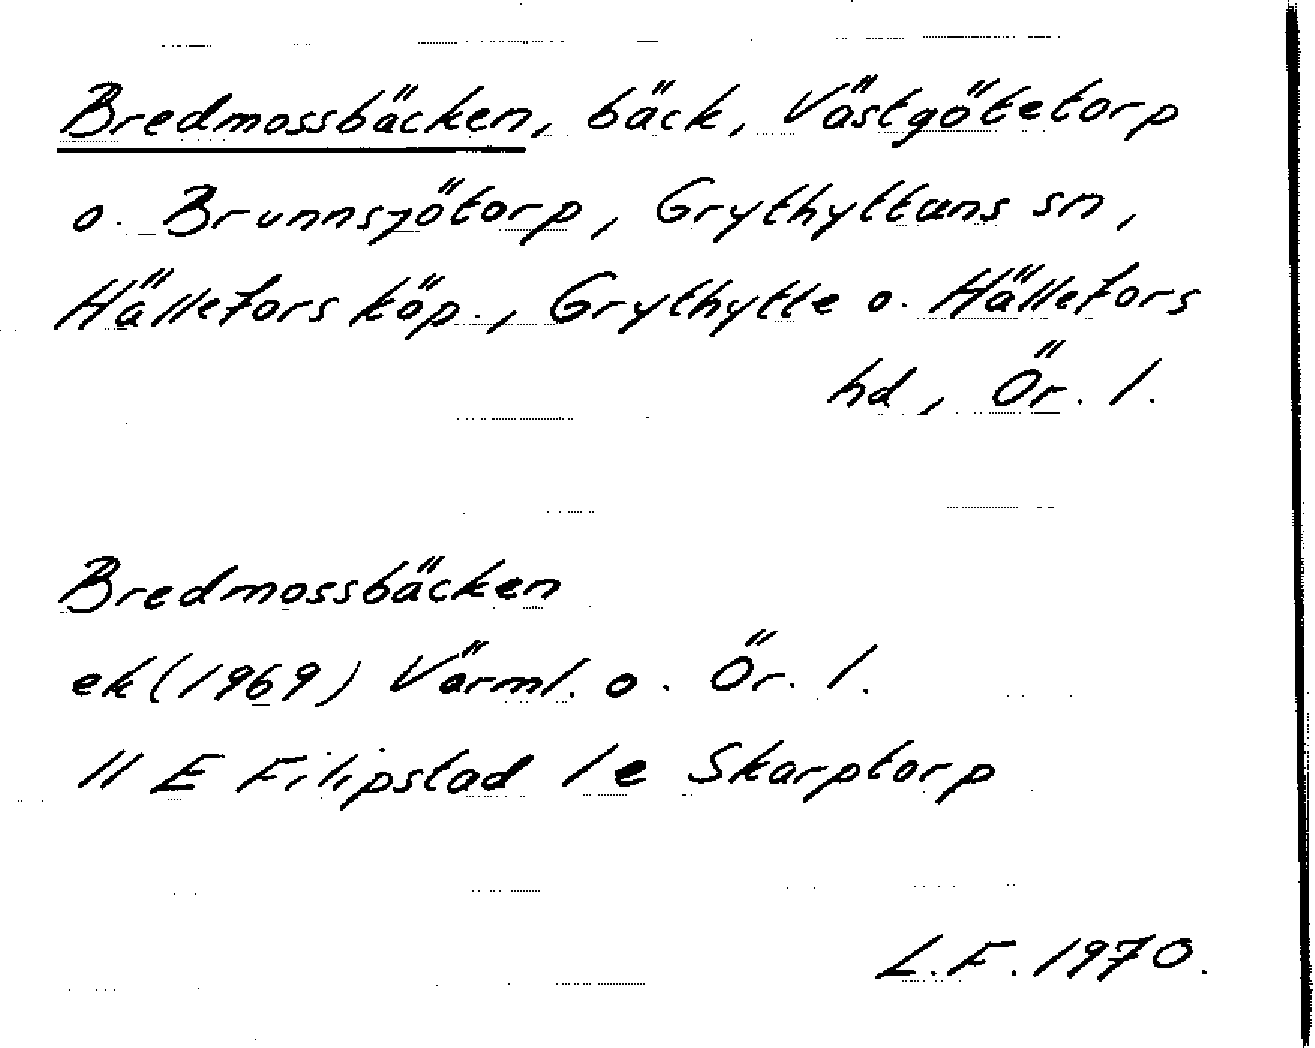 Bredmossbäcken, bäck, Västgötetorp
o. Brunnsjötorp, Grythyttans sn,
Hällefors köp., Grythytte o. Hällefors
hd, Ör. l.
Bredmossbäcken
ek (1969) Värml. o. Ör. l.
11 E Filipstad 1e Skarptorp
L.F. 1970.